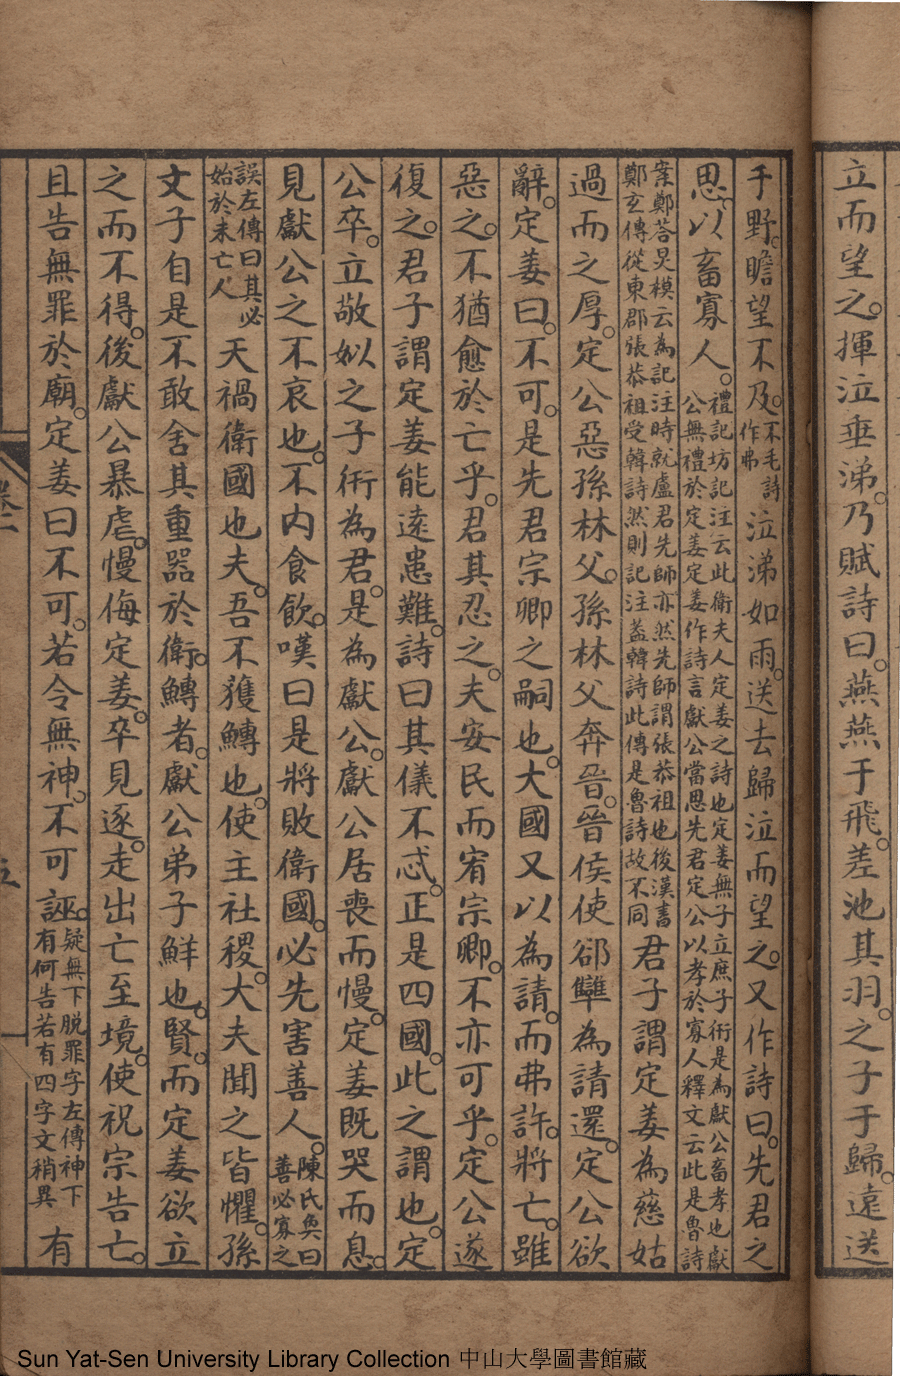 立而望之。揮泣垂涕。乃賦詩曰。燕燕于飛。差池其羽。之子于歸。遠送
于野。瞻望不及。不毛詩作弗泣涕如雨。送去歸泣而望之。又作詩曰。先君之
思。以畜寡人。禮記坊記注云此衛夫人定姜之詩也定姜無子立庶子衎是為獻公畜孝也獻公無禮於定姜定姜作詩言獻公當思先君定公以孝於寡人釋文云此是魯詩
案鄭荅炅模云為記注時就盧君先師亦然先師謂張恭祖也後漢書鄭玄傳從東郡張恭祖受韓詩然則記注葢韓詩此傳是魯詩故不同君子謂定姜為慈姑
過而之厚。定公惡孫林父。孫林父奔晉。晉侯使郤犨為請還。定公欲
辭。定姜曰。不可。是先君宗卿之嗣也。大國又以為請。而弗許。將亡。雖
惡之。不猶愈於亡乎。君其忍之。夫安民而宥宗卿。不亦可乎。定公遂
復之。君子謂定姜能遠患難。詩曰其儀不忒。正是四國。此之謂也。定
公卒。立敬姒之子衎為君。是為獻公。獻公居喪而慢。定姜既哭而息。
見獻公之不哀也。不內食飲。嘆曰是將敗衛國。必先害善人。陳氏奐曰善必寡之
誤左傳曰其必始於未亡人天禍衛國也夫。吾不獲鱄也。使主社稷。大夫聞之皆懼。孫
文子自是不敢舍其重器於衛。鱄者。獻公弟子鮮也。賢。而定姜欲立
之而不得。後獻公暴虐。慢侮定姜。卒見逐。走出亡至境。使祝宗告亡。
且告無罪於廟。定姜曰不可。若令無神。不可誣。疑無下脫罪字左傳神下有何告若有四字文稍異有
卷一
五
Sun Yat-Sen University Library Collection 中山大學圖書館藏